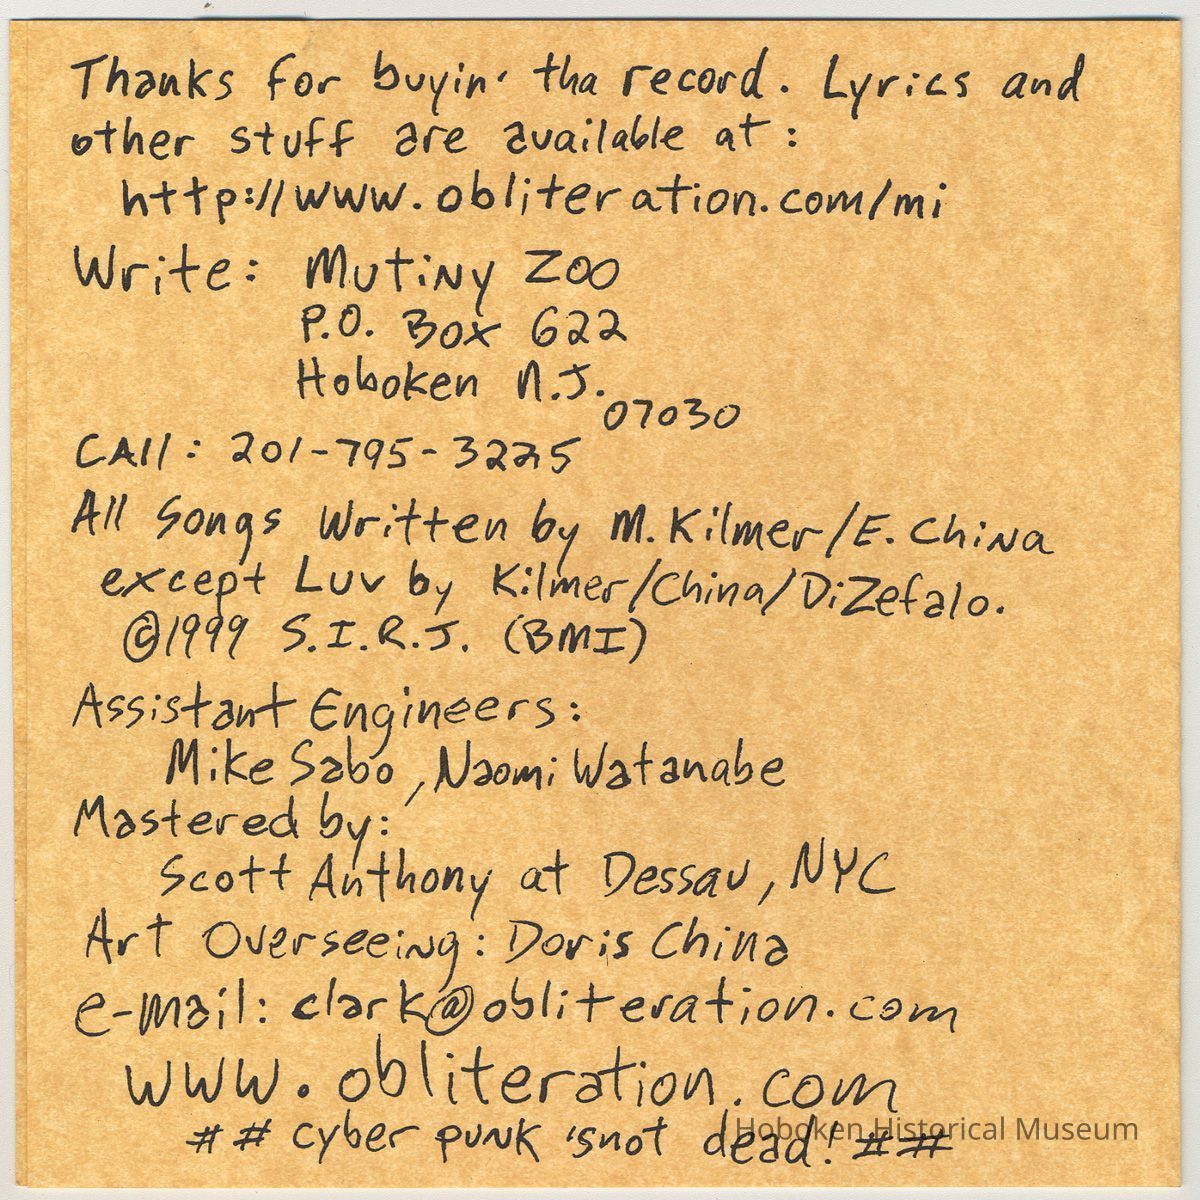 Thanks for buyin' tha record. Lyrics and
other stuff are available at:
http://www.obliteration.com/mi
Write: Mutiny Zoo
P.O. Box 622
Hoboken N.J.
07030
CAll: 201-795-3225
All Songs Written by M. Kilmer/E. China
except Luv by Kilmer/China/DiZefalo.
©1999 S.I.R.J. (BMI)
Assistant Engineers:
Mike Sabo, Naomi Watanabe
Mastered by:
Scott Anthony at Dessau, NYC
Art Overseeing: Doris China
e-mail: clark@obliteration.com
www.obliteration.com
## cyber punk 'snot dead! ##
Hoboken Historical Museum